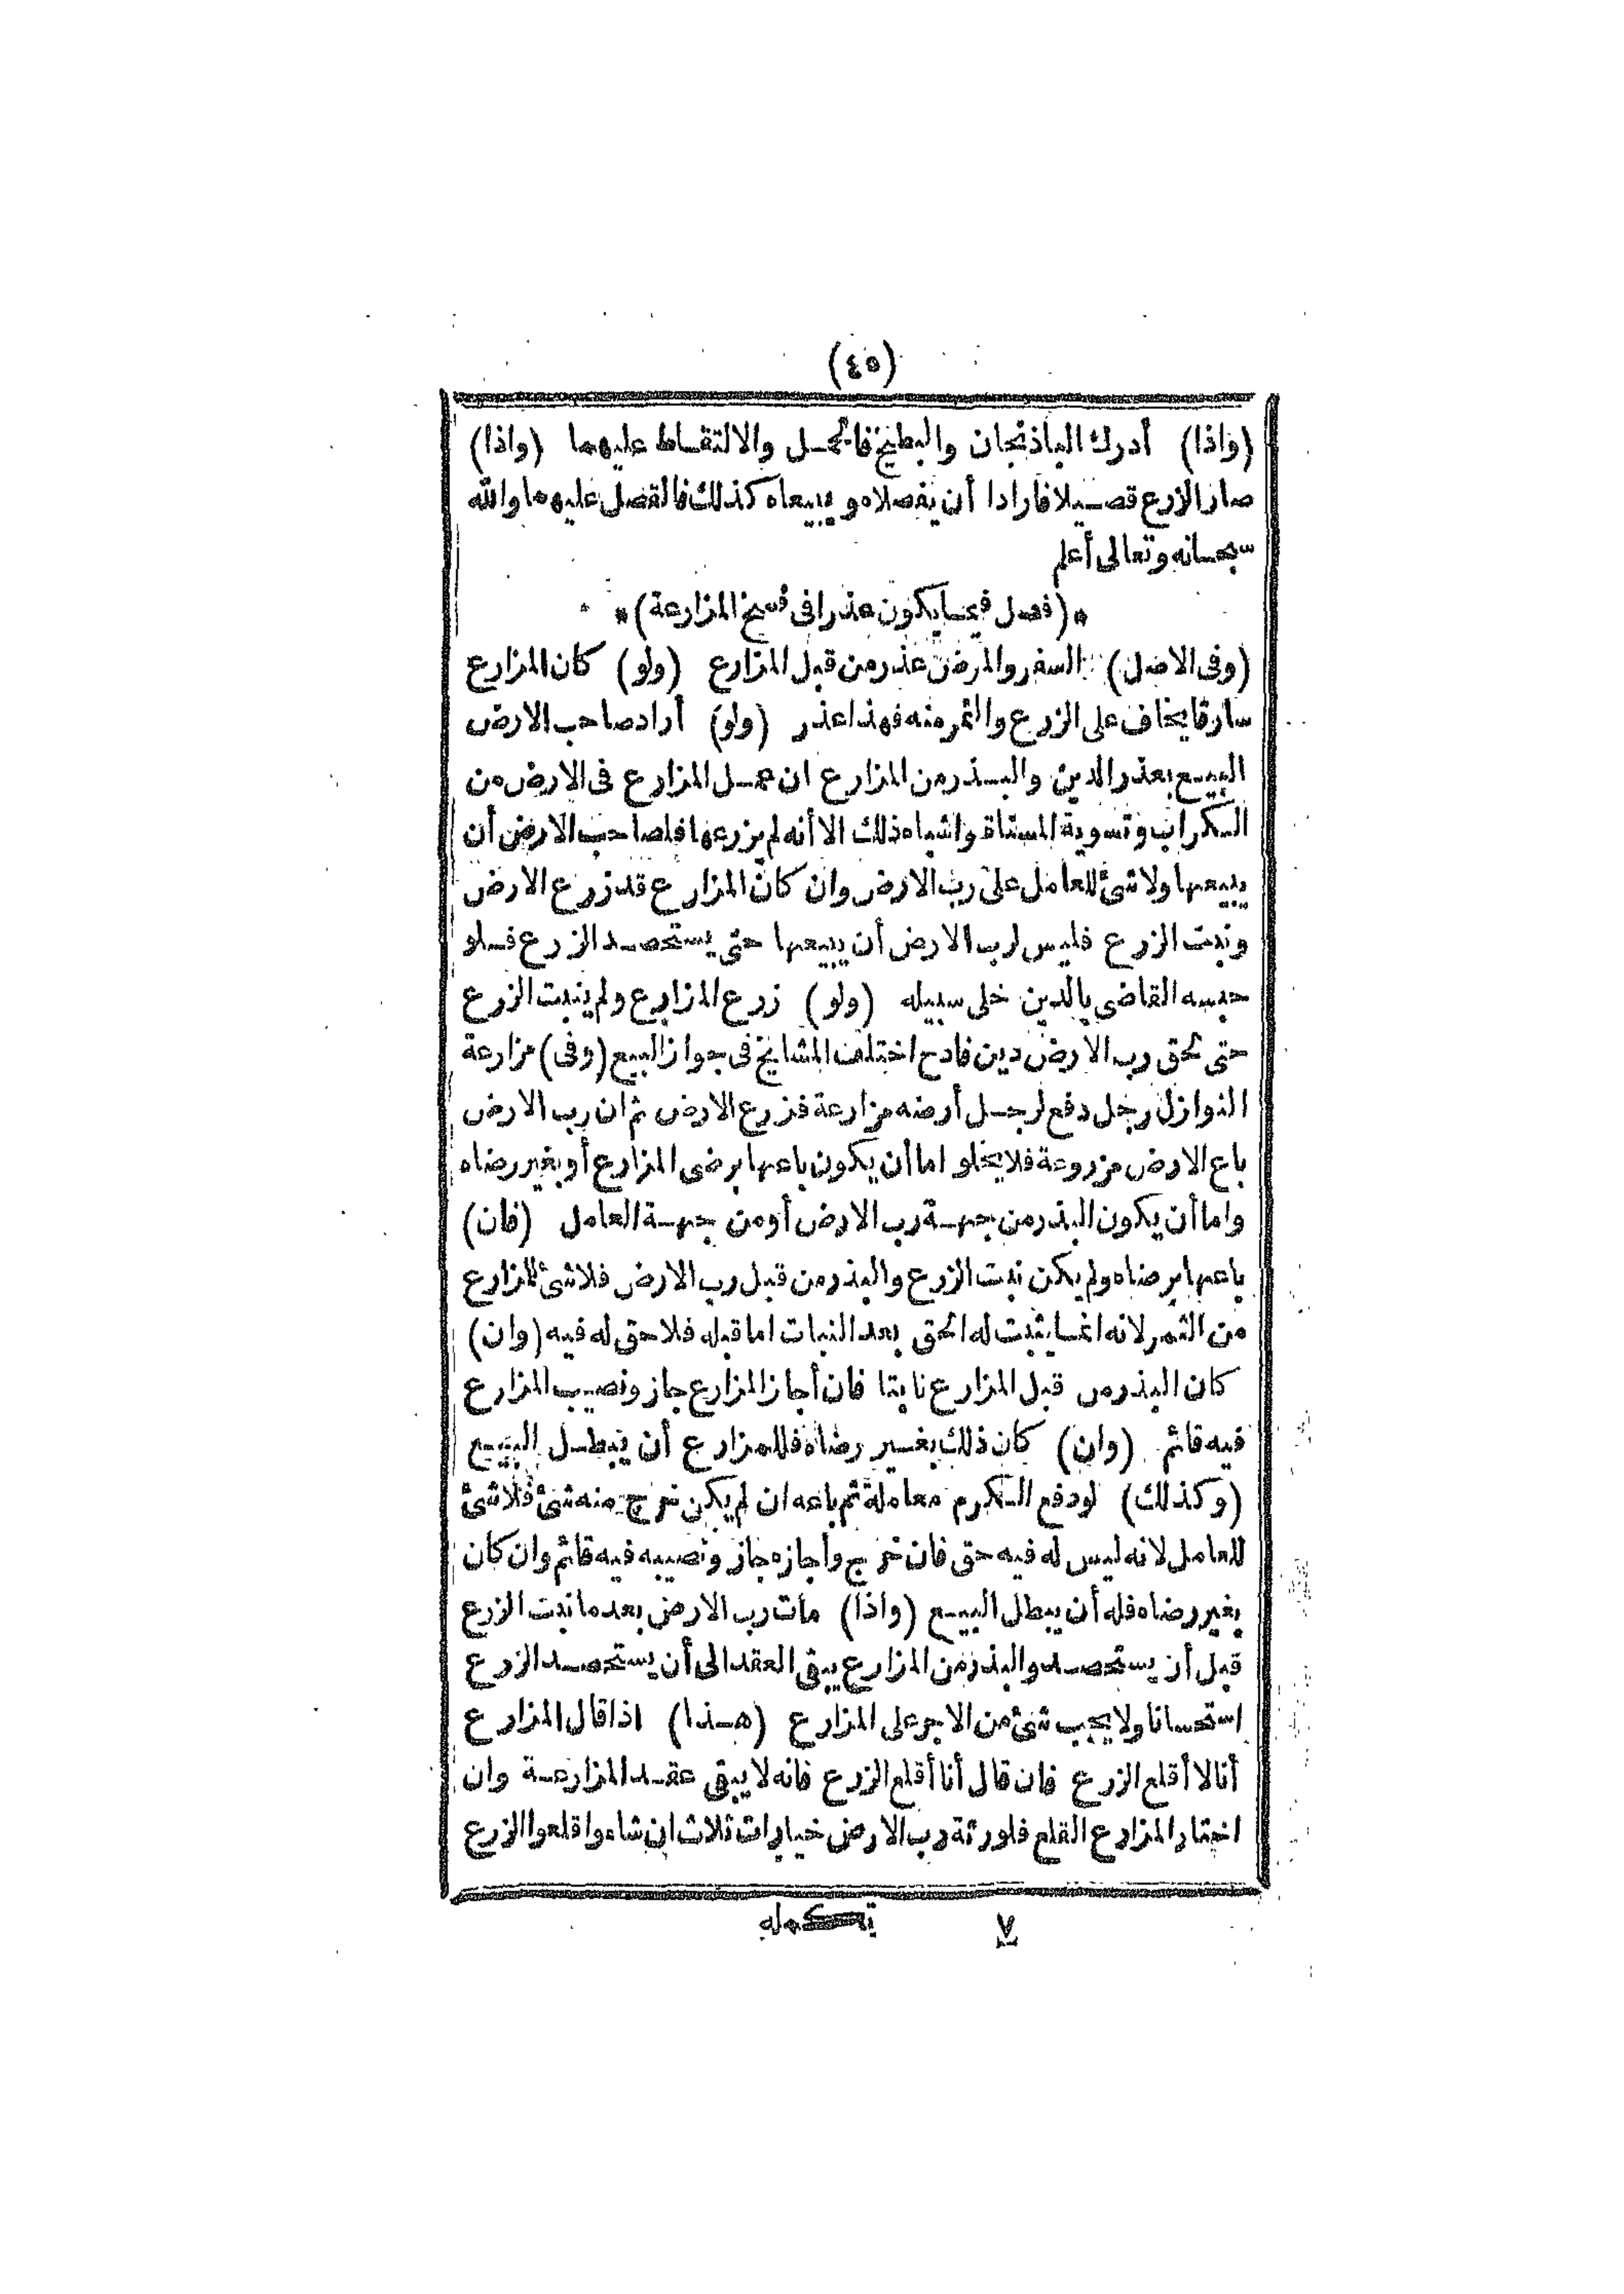 (٤٥)
(واذا) أدرك الباذنجان والبطيخ فالحمل والالتقاط عليهما (واذا)
صار الزرع قصيلا فارادا أن يفصلاه ويبيعاه كذلك فالفصل عليهما والله
سبحانه وتعالى أعلم
*(فصل فيما يكون عذرا فى فسخ المزارعة)*
(وفى الاصل) السفر والمرض عذر من قبل المزارع (ولو) كان المزارع
سارقا يخاف على الزرع والثمر منه فهذا عذر (ولو) أراد صاحب الارض
البيع بعذر الدين والبذر من المزارع ان عمل المزارع فى الارض من
الكراب وتسوية المسناة واشباه ذلك الا أنه لم يزرعها فلصاحب الارض أن
يبيعها ولا شئ للعامل على رب الارض وان كان المزارع قد زرع الارض
ونبت الزرع فليس لرب الارض أن يبيعها حتى يستحصد الزرع فلو
حبسه القاضى بالدين خلى سبيله (ولو) زرع المزارع ولم ينبت الزرع
حتى لحق رب الارض دين فادح اختلف المشايخ فى جواز البيع (وفى) مزارعة
النوازل رجل دفع لرجل أرضه مزارعة فزرع الارض ثم ان رب الارض
باع الارض مزروعة فلا يخلو اما أن يكون باعها برضى المزارع أو بغير رضاه
واما أن يكون البذر من جهة رب الارض أو من جهة العامل (فان)
باعها برضاه ولم يكن نبت الزرع والبذر من قبل رب الارض فلا شئ للمزارع
من الثمر لانه انما يثبت له الحق بعد النبات اما قبله فلا حق له فيه (وان)
كان البذر من قبل المزارع نابتا فان أجاز المزارع جاز ونصيب المزارع
فيه قائم (وان) كان ذلك بغير رضاه فللمزارع أن يبطل البيع
(وكذلك) لو دفع الكرم معاملة ثم باعه ان لم يكن خرج منه شئ فلا شئ
للعامل لانه ليس له فيه حق فان خرج وأجازه جاز ونصيبه فيه قائم وان كان
بغير رضاه فله أن يبطل البيع (واذا) مات رب الارض بعد ما نبت الزرع
قبل أن يستحصد والبذر من المزارع يبقى العقد الى أن يستحصد الزرع
استحسانا ولا يجب شئ من الاجر على المزارع (هذا) اذا قال المزارع
أنا لا أقلع الزرع فان قال أنا أقلع الزرع فانه لا يبقى عقد المزارعة وان
اختار المزارع القلع فلورثة رب الارض خيارات ثلاث ان شاءوا قلعوا الزرع
٧ تكمله